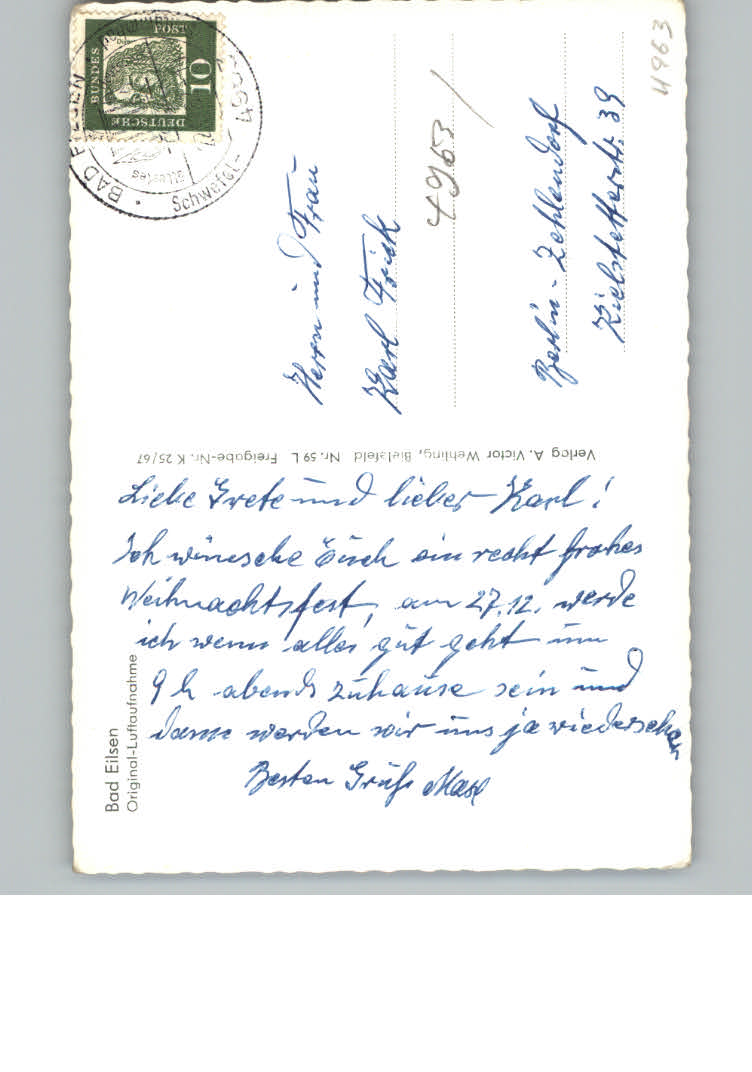 Liebe Grete und lieber Karl!
Ich wünsche Euch ein recht frohes
Weihnachtsfest, am 27.12. werde
ich wenn alles gut geht um
9 h abends zuhause sein und
dann werden wir uns ja wiedersehen
Besten Gruß Max
Bad Eilsen
Original-Luftaufnahme
Verlag A. Victor Wehling, Bielefeld Nr. 59 L Freigabe-Nr. K 25/67
Herrn und Frau
Karl Frick
4963
Berlin-Zehlendorf
39
4963
DEUTSCHE
BUNDES
POST
10
BAD EILSEN
Schwefel-